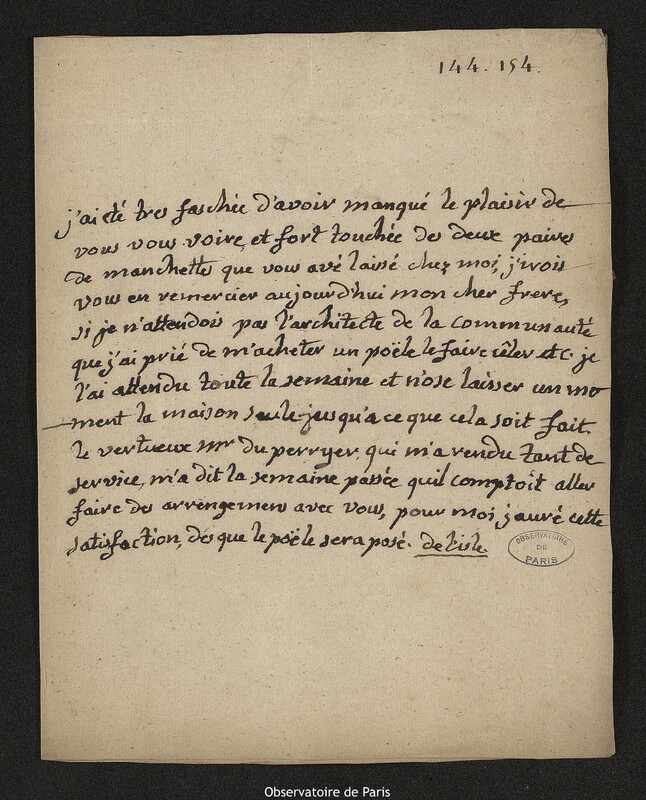 144. 154.
j'ai été tres faschée d'avoir manqué le plaisir de
vous vous voire, et fort touchée des deux paires
de manchettes que vous avé laissé chez moi, j'irois
vous en remercier aujourd'hui mon cher frere,
si je n'attendois pas l'architecte de la communauté
que j'ai prié de m'acheter un poële le faire etc. je
l'ai attendu toute la semaine et n'ose laisser un mo
ment la maison seule jusqu'a ce que cela soit fait.
le vertueux mr du perryer, qui m'a rendu tant de
service, m'a dit la semaine passée qu'il comptoit aller
faire des arrengemens avec vous, pour moi, j'auré cette
satisfaction, des que le poële sera posé. de l'isle.
OBSERVATOIRE
DE
PARIS
Observatoire de Paris